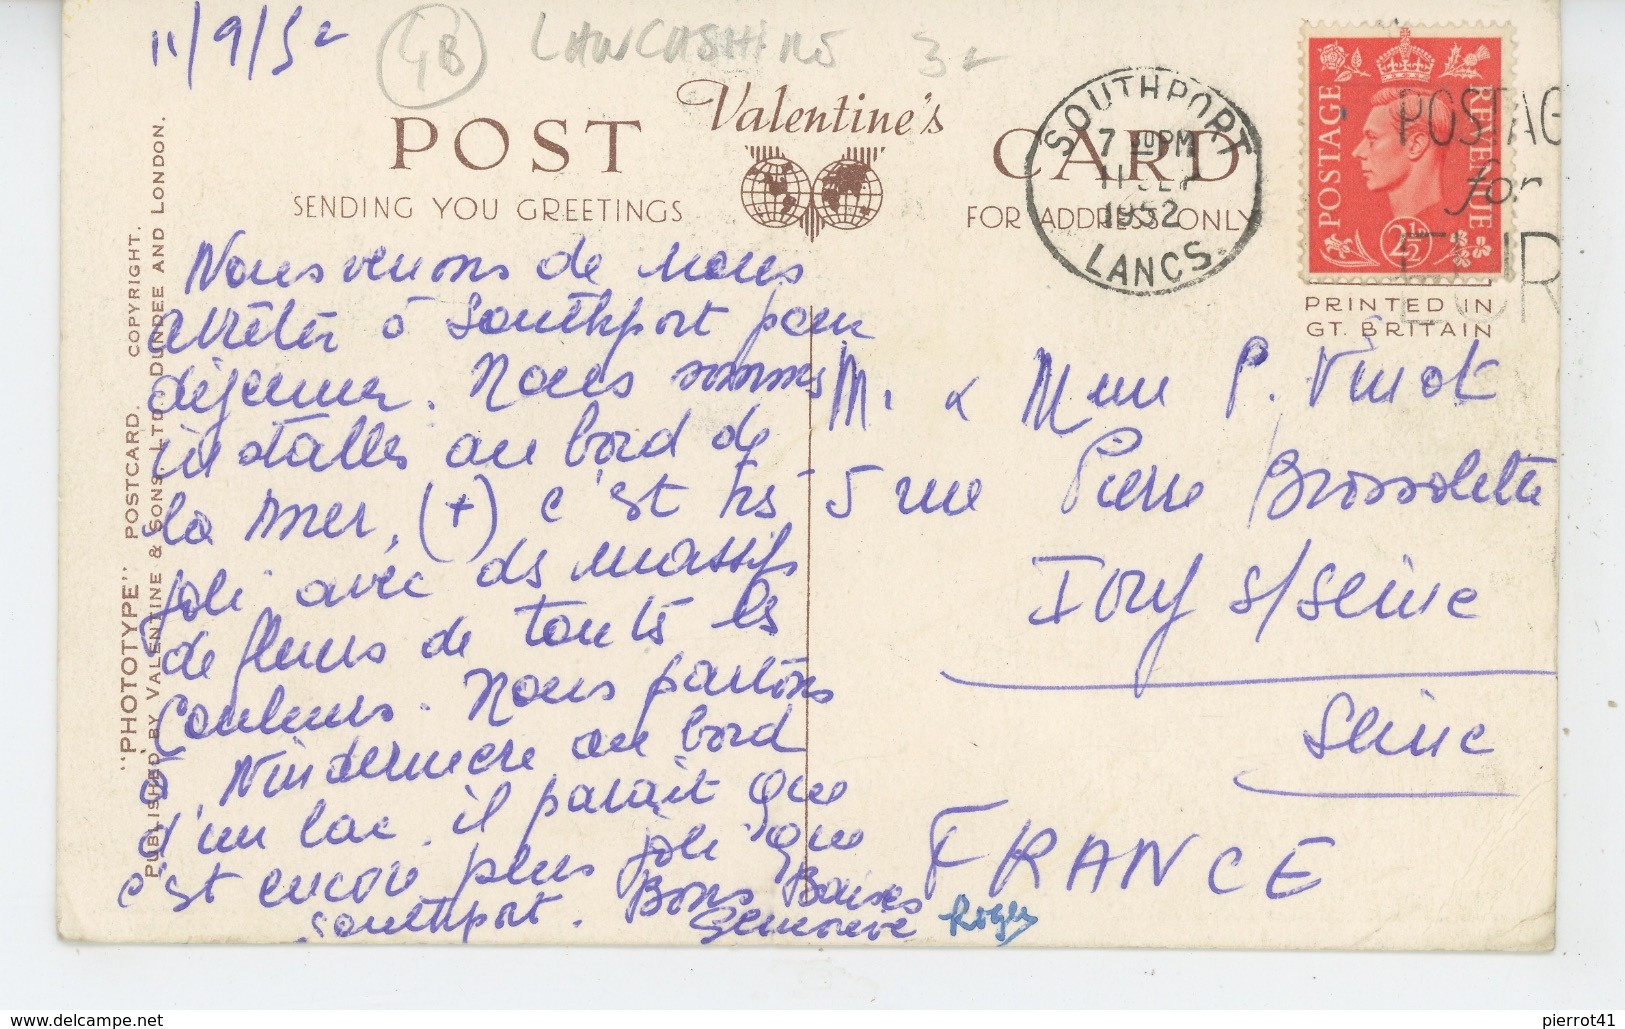 11/9/52
GB LANCASHIRE 3-
Valentine's
POST CARD
SENDING YOU GREETINGS
FOR ADDRESS ONLY
SOUTHPORT
7 PM
11 SEP
1952
LANCS.
POSTAGE REVENUE
2½
POSTAG
for
EUR
PRINTED IN
GT. BRITAIN
"PHOTOTYPE" POSTCARD. COPYRIGHT.
PUBLISHED BY VALENTINE & SONS, LTD., DUNDEE AND LONDON.
Nous venons de nous
arrêter à Southport pour
déjeuner. Nous sommes
installés au bord de
la mer, (+) c'est très
joli avec des massifs
de fleurs de toutes les
couleurs. Nous partons
à Windermere au bord
d'un lac, il parait que
c'est encore plus joli que
Southport. Bons Baisers
Genevieve Roger
M. & Mme P. Vinot
5 rue Pierre Brossolette
Ivry s/Seine
Seine
FRANCE
www.delcampe.net
pierrot41